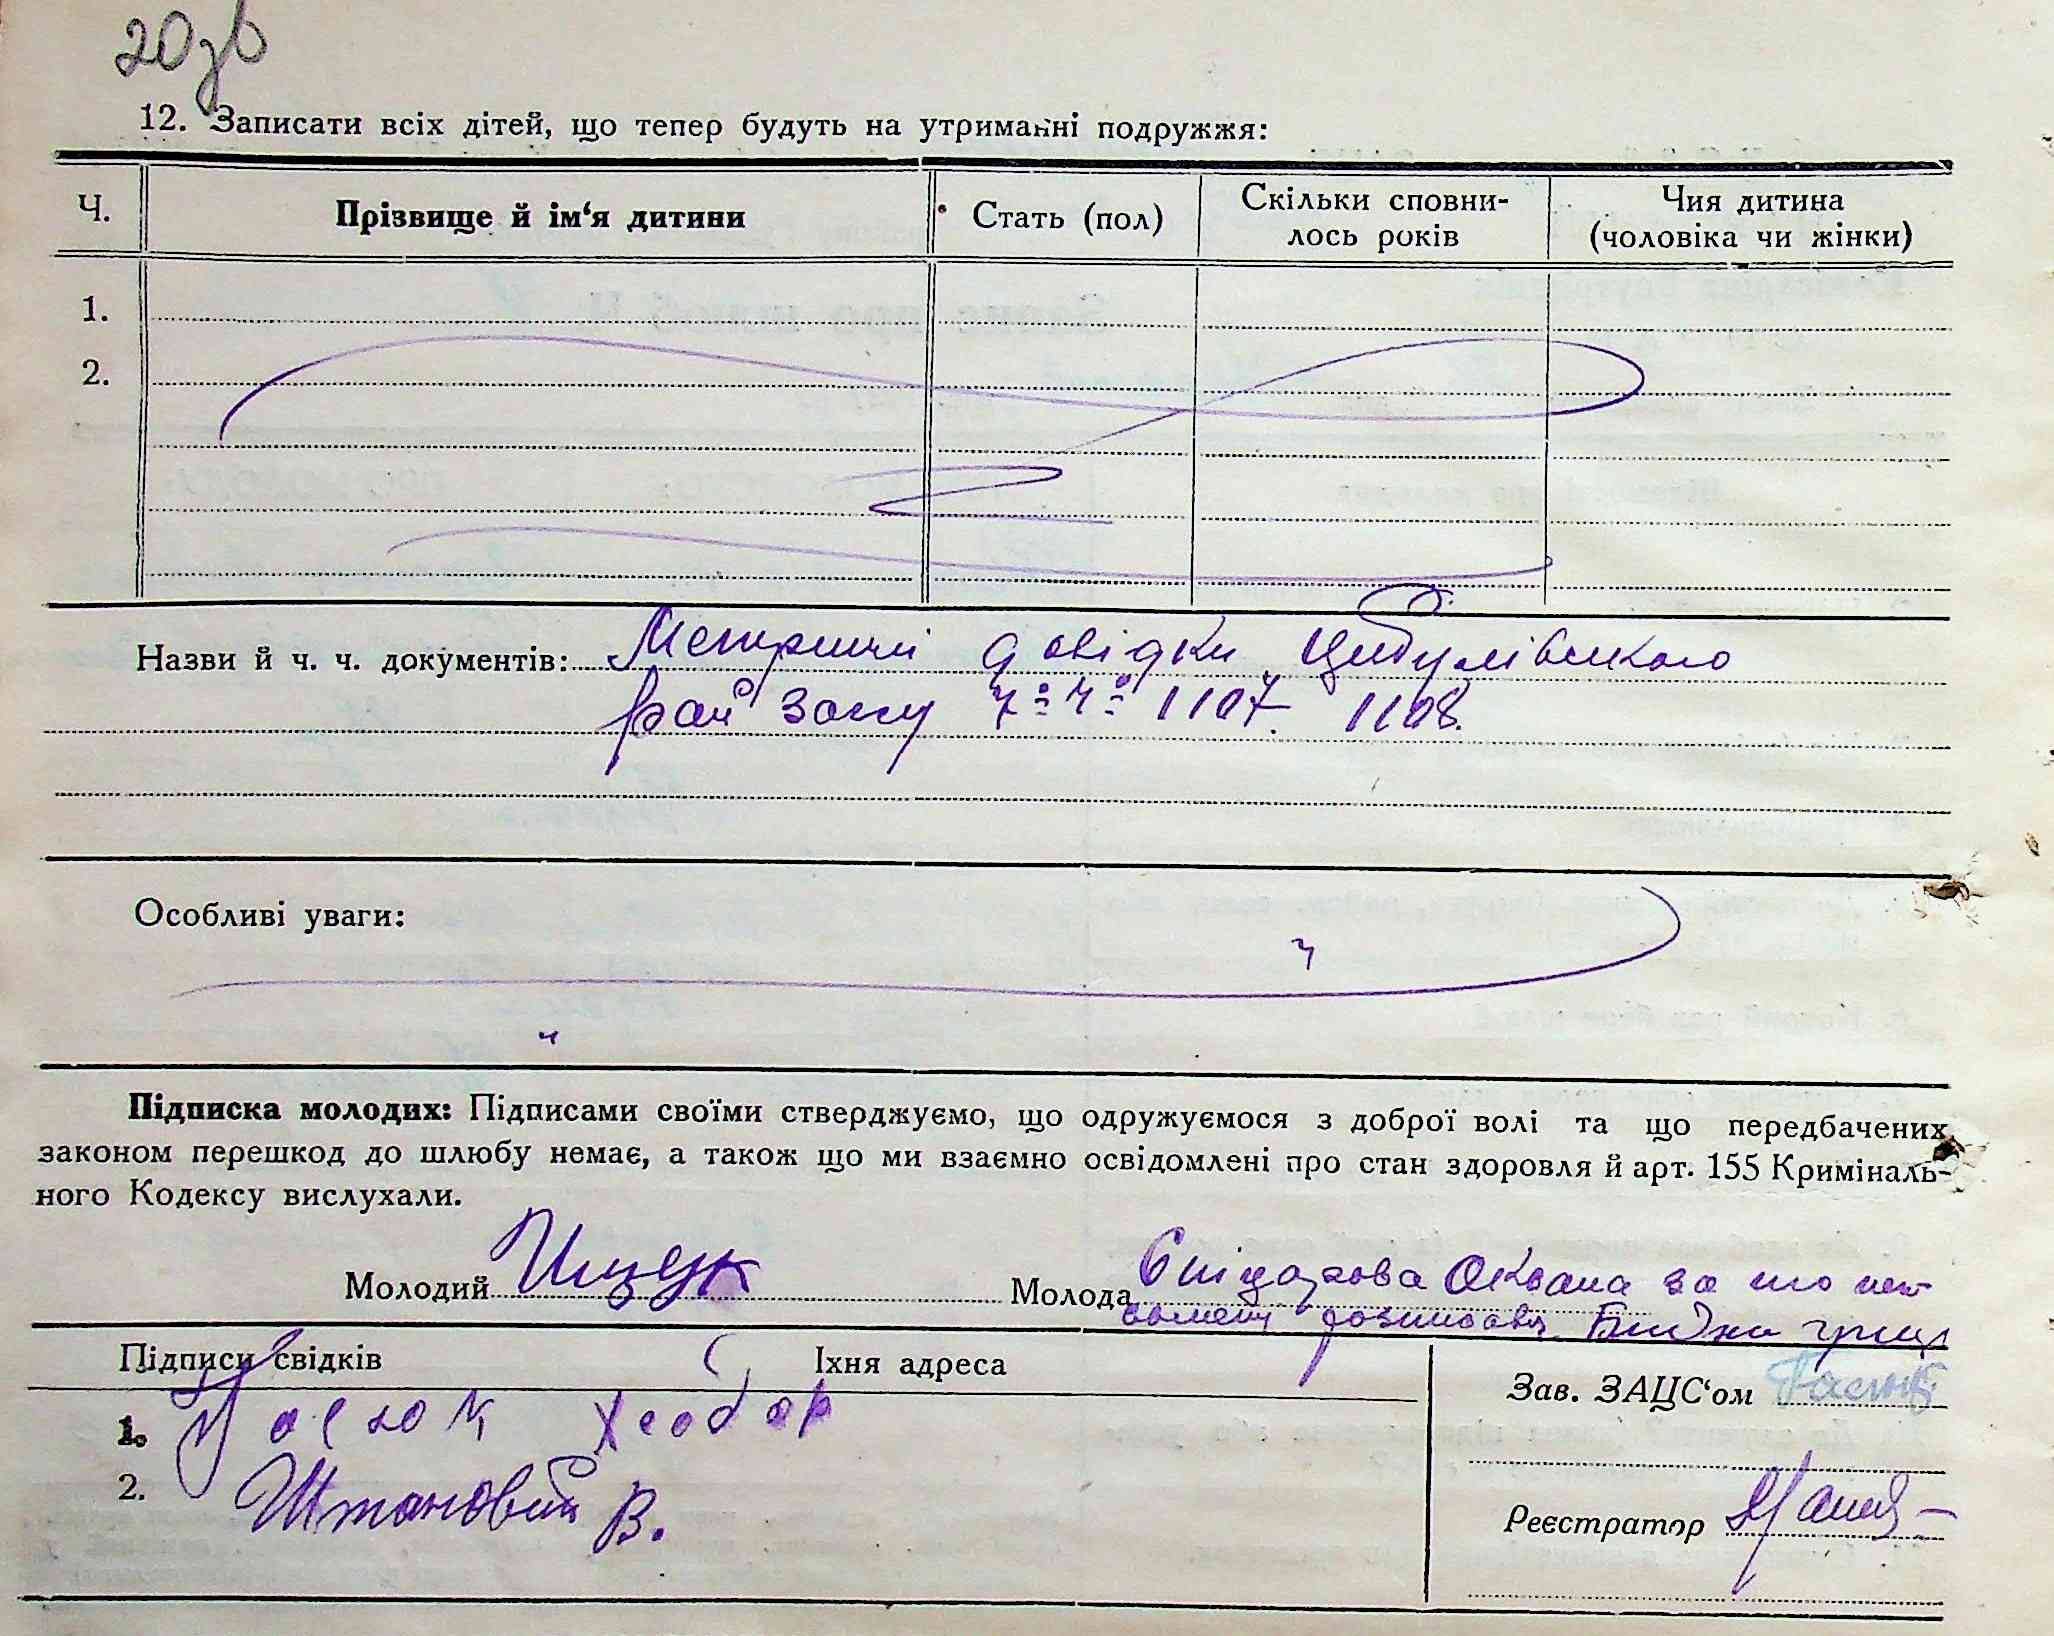 20зв
12. Записати всіх дітей, що тепер будуть на утриманні подружжя:
Ч.
Прізвище й ім‘я дитини
Стать (пол)
Скільки сповни-
лось років
Чия дитина
(чоловіка чи жінки)
1.
2.
Назви й ч. ч. документів: Метричні довідки Цибулівського
Рай загсу 1107. 1108.
Особливі уваги:
Підписка молодих: Підписами своїми стверджуємо, що одружуємося з доброї волі та що передбачених
законом перешкод до шлюбу немає, а також що ми взаємно освідомлені про стан здоровля й арт. 155 Криміналь-
ного Кодексу вислухали.
Молодий
Молода Оксана за
Підписи свідків
Їхня адреса
1.
2. Штановий В.
Зав. ЗАЦС‘ом
Реєстратор